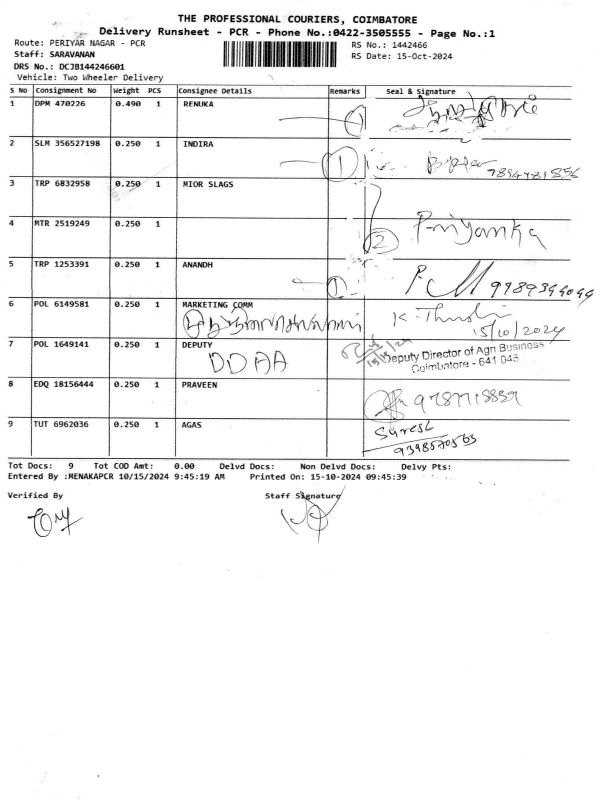 THE PROFESSIONAL COURIERS, COIMBATORE
Delivery Runsheet - PCR - Phone No.:0422-3505555 - Page No.:1
Route: PERIYAR NAGAR - PCR
RS No.: 1442466
Staff: SARAVANAN
RS Date: 15-Oct-2024
DRS No.: DCJB144246601
Vehicle: Two Wheeler Delivery
S No Consignment No Weight PCS Consignee Details Remarks Seal & Signature
1 DPM 470226 0.490 1 RENUKA 1
2 SLM 356527198 0.250 1 INDIRA 1
7894781856
3 TRP 6832958 0.250 1 MIOR SLAGS
4 MTR 2519249 0.250 1 2 Priyanka
5 TRP 1253391 0.250 1 ANANDH 1
6 POL 6149581 0.250 1 MARKETING COMM K.
15/10/2024
7 POL 1649141 0.250 1 DEPUTY
DDAA
Deputy Director of Agri Business
Coimbatore - 641 045
8 EDQ 18156444 0.250 1 PRAVEEN
9 TUT 6962036 0.250 1 AGAS Suresh
Tot Docs: 9 Tot COD Amt: 0.00 Delvd Docs: Non Delvd Docs: Delvy Pts:
Entered By :MENAKAPCR 10/15/2024 9:45:19 AM Printed On: 15-10-2024 09:45:39
Verified By Staff Signature